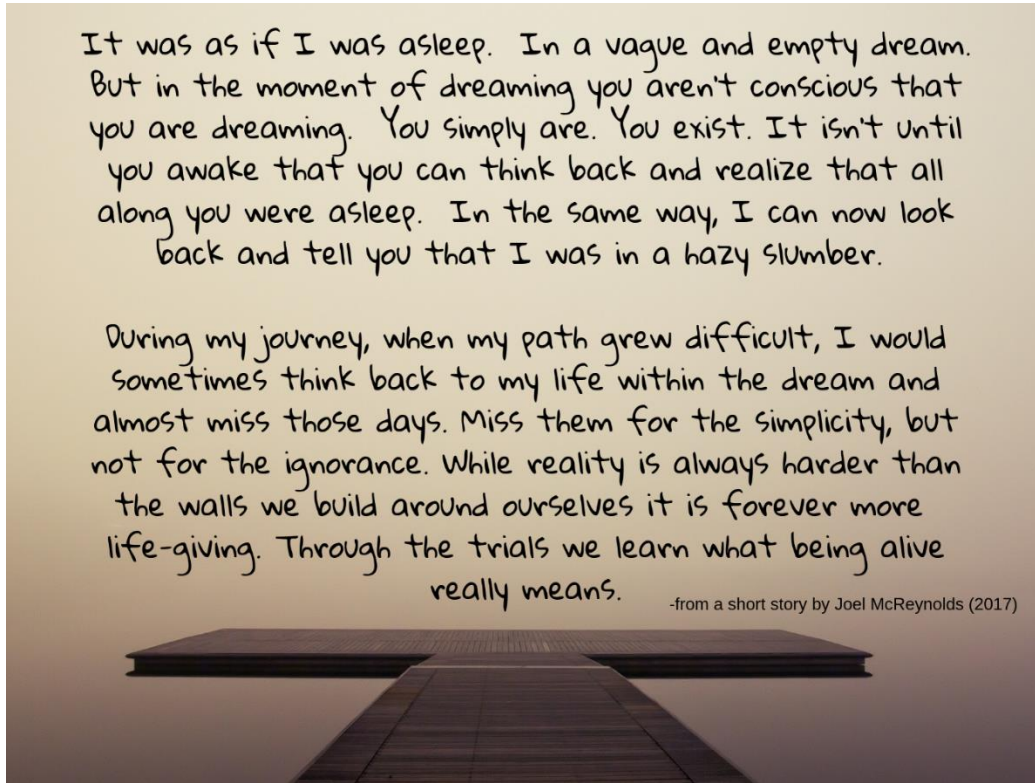 It was as if I was asleep. In a vague and empty dream.
But in the moment of dreaming you aren't conscious that
you are dreaming. You simply are. You exist. It isn't until
you awake that you can think back and realize that all
along you were asleep. In the same way, I can now look
back and tell you that I was in a hazy slumber.
During my journey, when my path grew difficult, I would
sometimes think back to my life within the dream and
almost miss those days. Miss them for the simplicity, but
not for the ignorance. While reality is always harder than
the walls we build around ourselves it is forever more
life-giving. Through the trials we learn what being alive
really means.
-from a short story by Joel McReynolds (2017)